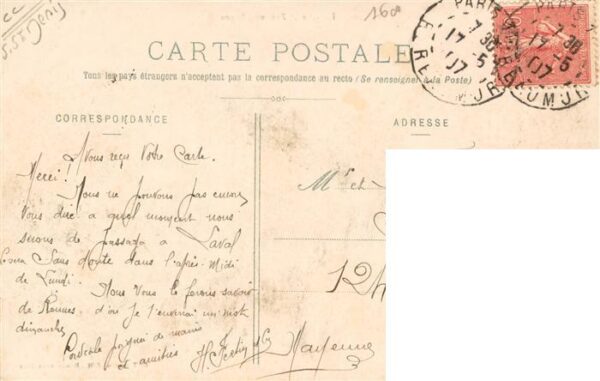 CC
S.St Denis
160
CARTE POSTALE
Tous les pays étrangers n'acceptent pas la correspondance au recto (Se renseigner à la Poste)
CORRESPONDANCE
ADRESSE
PARIS
7 30
17 - 5
07
R. REAUMUR
Nous reçu Votre Carte.
Merci!
Nous ne pouvons pas encore
Vous dire a quel moment nous
serons de passage a Laval
Sans doute dans l'après-Midi
de Lundi.
Nous Vous le ferons savoir
de Rennes d'où Je t'enverrai un mot
dimanche
Cordiale poignée de mains
et amitiés
Mr et
12 H
Mayenne